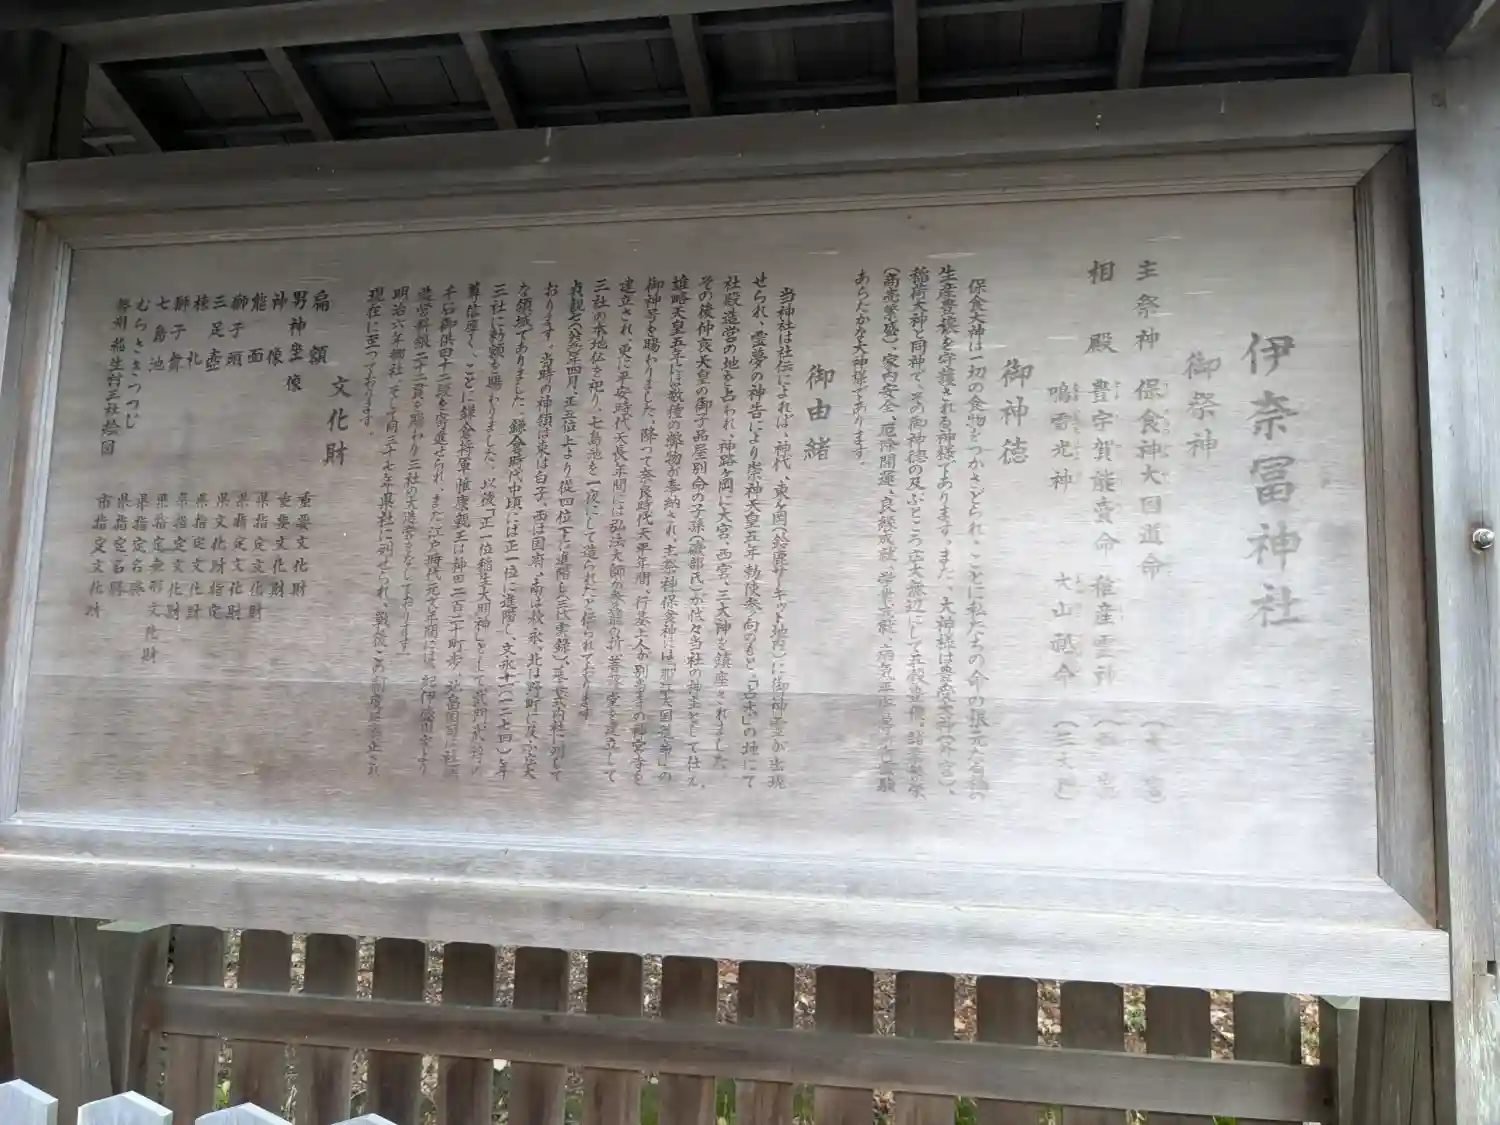 伊奈冨神社
御祭神
主祭神 保食神 大国道命
相殿 豊宇賀能賣命 稚産霊神
鳴雷光神 大山祗命 (三大神)
御神徳
保食大神は一切の食物をつかさどられ、ことに私たちの命の根元
生産豊穣を守護される神様であります。また、大神様は豊受大神(外宮)、
稲荷大神と同神で、その御神徳の及ぶところ広大無辺にして五穀豊穣、諸業繁栄、
(商売繁盛)、家内安全、厄除開運、良縁成就、学業成就、病気平癒等
あらたかな大神様であります。
御由緒
当神社は社伝によれば、神代、東ヶ岡(鈴鹿サーキット地内)に御神霊が出現
せられ、霊夢の神告により崇神天皇五年勅使参向のもと、「占木」の地にて
社殿造営の地を占われ、神路ヶ岡に大宮、西宮、三大神を鎮座されました。
その後仲哀天皇の御子品屋別命の子孫(磯部氏)が代々当社の神主として仕え、
雄略天皇五年には数種の幣物が奉納され、主祭神保食神には「那江大国道命」の
御神号を賜わりました。降って奈良時代天平年間、行基上人が別当寺の神宮寺を
建立され、更に平安時代天長年間には弘法大師が参籠の折、菩提堂を建立して
三社の本地仏を祀り、七島池を一夜にして造られたと伝られております。
貞観七(八六五)年四月、正五位上より従四位下に進階し(三代実録)、延喜式内社に列して
おります。当時の神領は東は白子、西は国府、南は秋永、北は野町に及ぶ広大
な領域でありました。鎌倉時代中頃には正一位に進階し、文永十一(一二七四)年
三社に勅額を賜わりました。以後「正一位稲生大明神」として武門武将の
尊信厚く、ことに鎌倉将軍惟康親王は神田二百二十町歩、北畠国司は社
千石御供田十二段を寄進せられ、また江戸時代元文年間には、紀伊徳川家より
造営料銀二十二貫を賜わり三社の大造営をなしております。
明治六年郷社、そして同三十七年県社に列せられ、戦後この制度廃止され
現在に至っております。
文化財
扁額 重要文化財
男神坐像 重要文化財
神像 県指定文化財
能面 県指定文化財
獅子頭 県文化財指定
三足壺 県指定文化財
棟札 県指定文化財
獅子舞 県指定無形文化財
七島池 県指定名勝
むらさきつつじ 県指定名勝
勢州稲生村三社絵図 市指定文化財